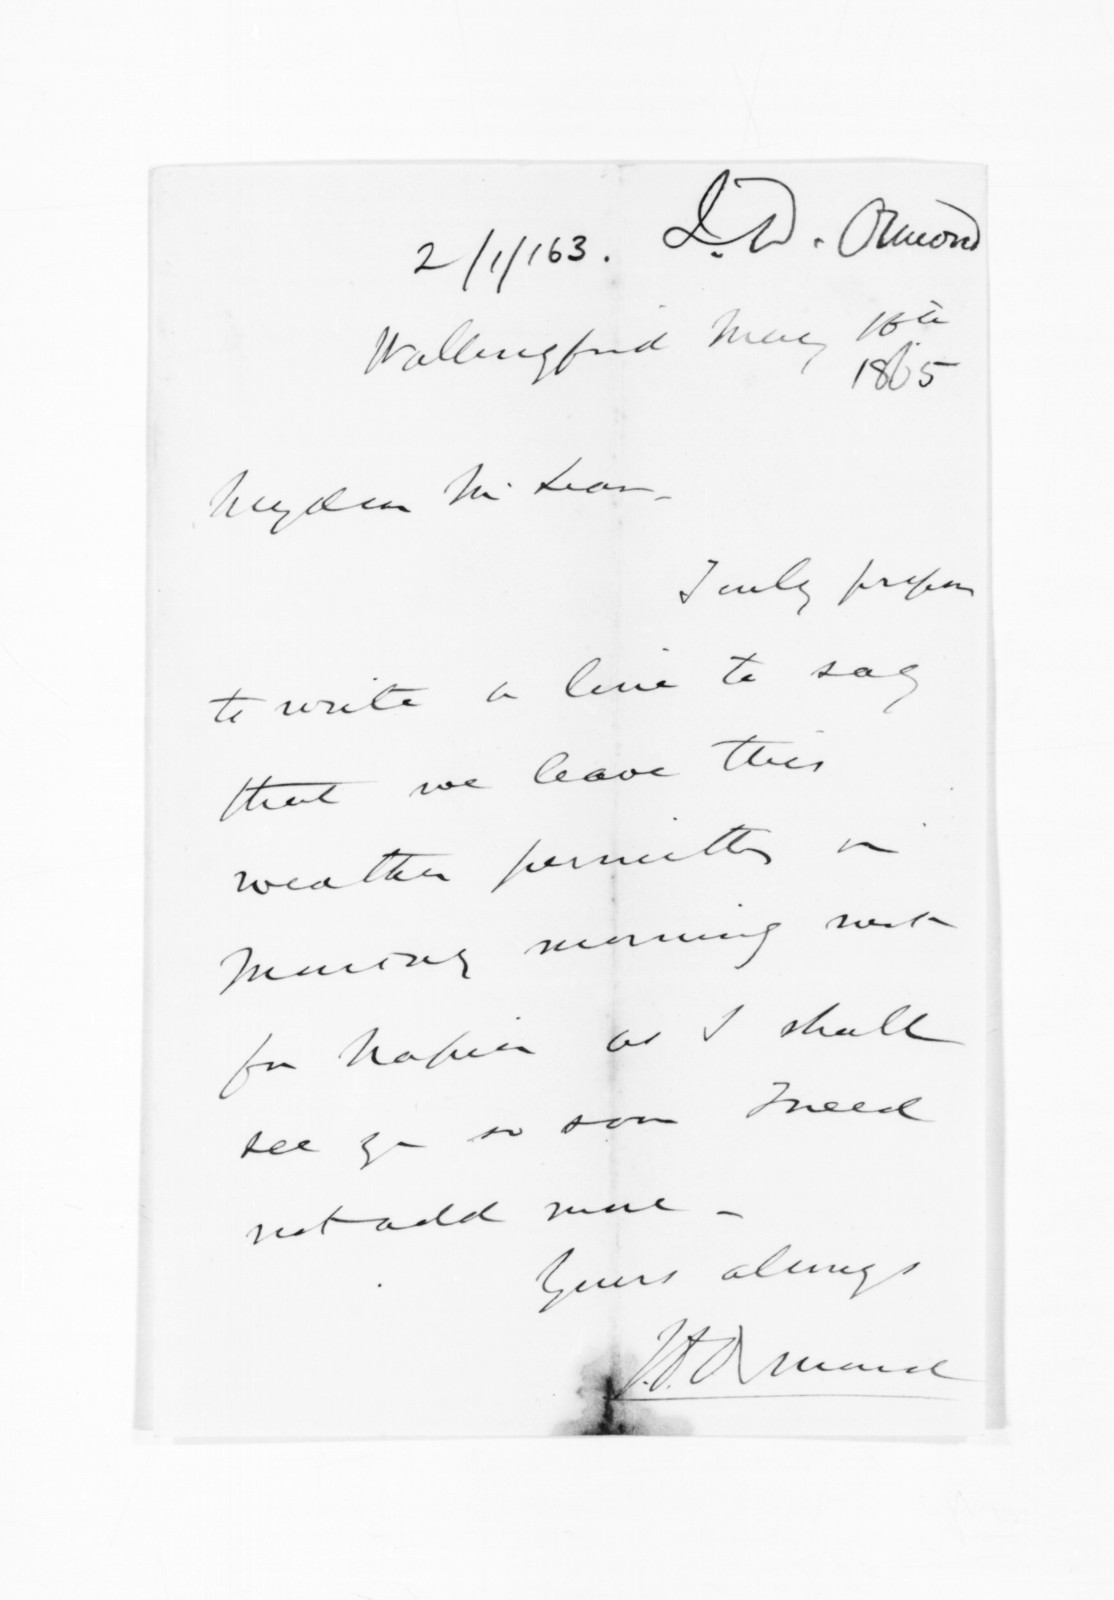 2/1/163. J.D. Ormond
Wallingford May 16th
1865
My dear McLean -
I only propose
to write a line to say
that we leave this
weather permittg on
Monday morning next
for Napier as I shall
see you so soon I need
not add more -
Yours always
J.D. Ormond